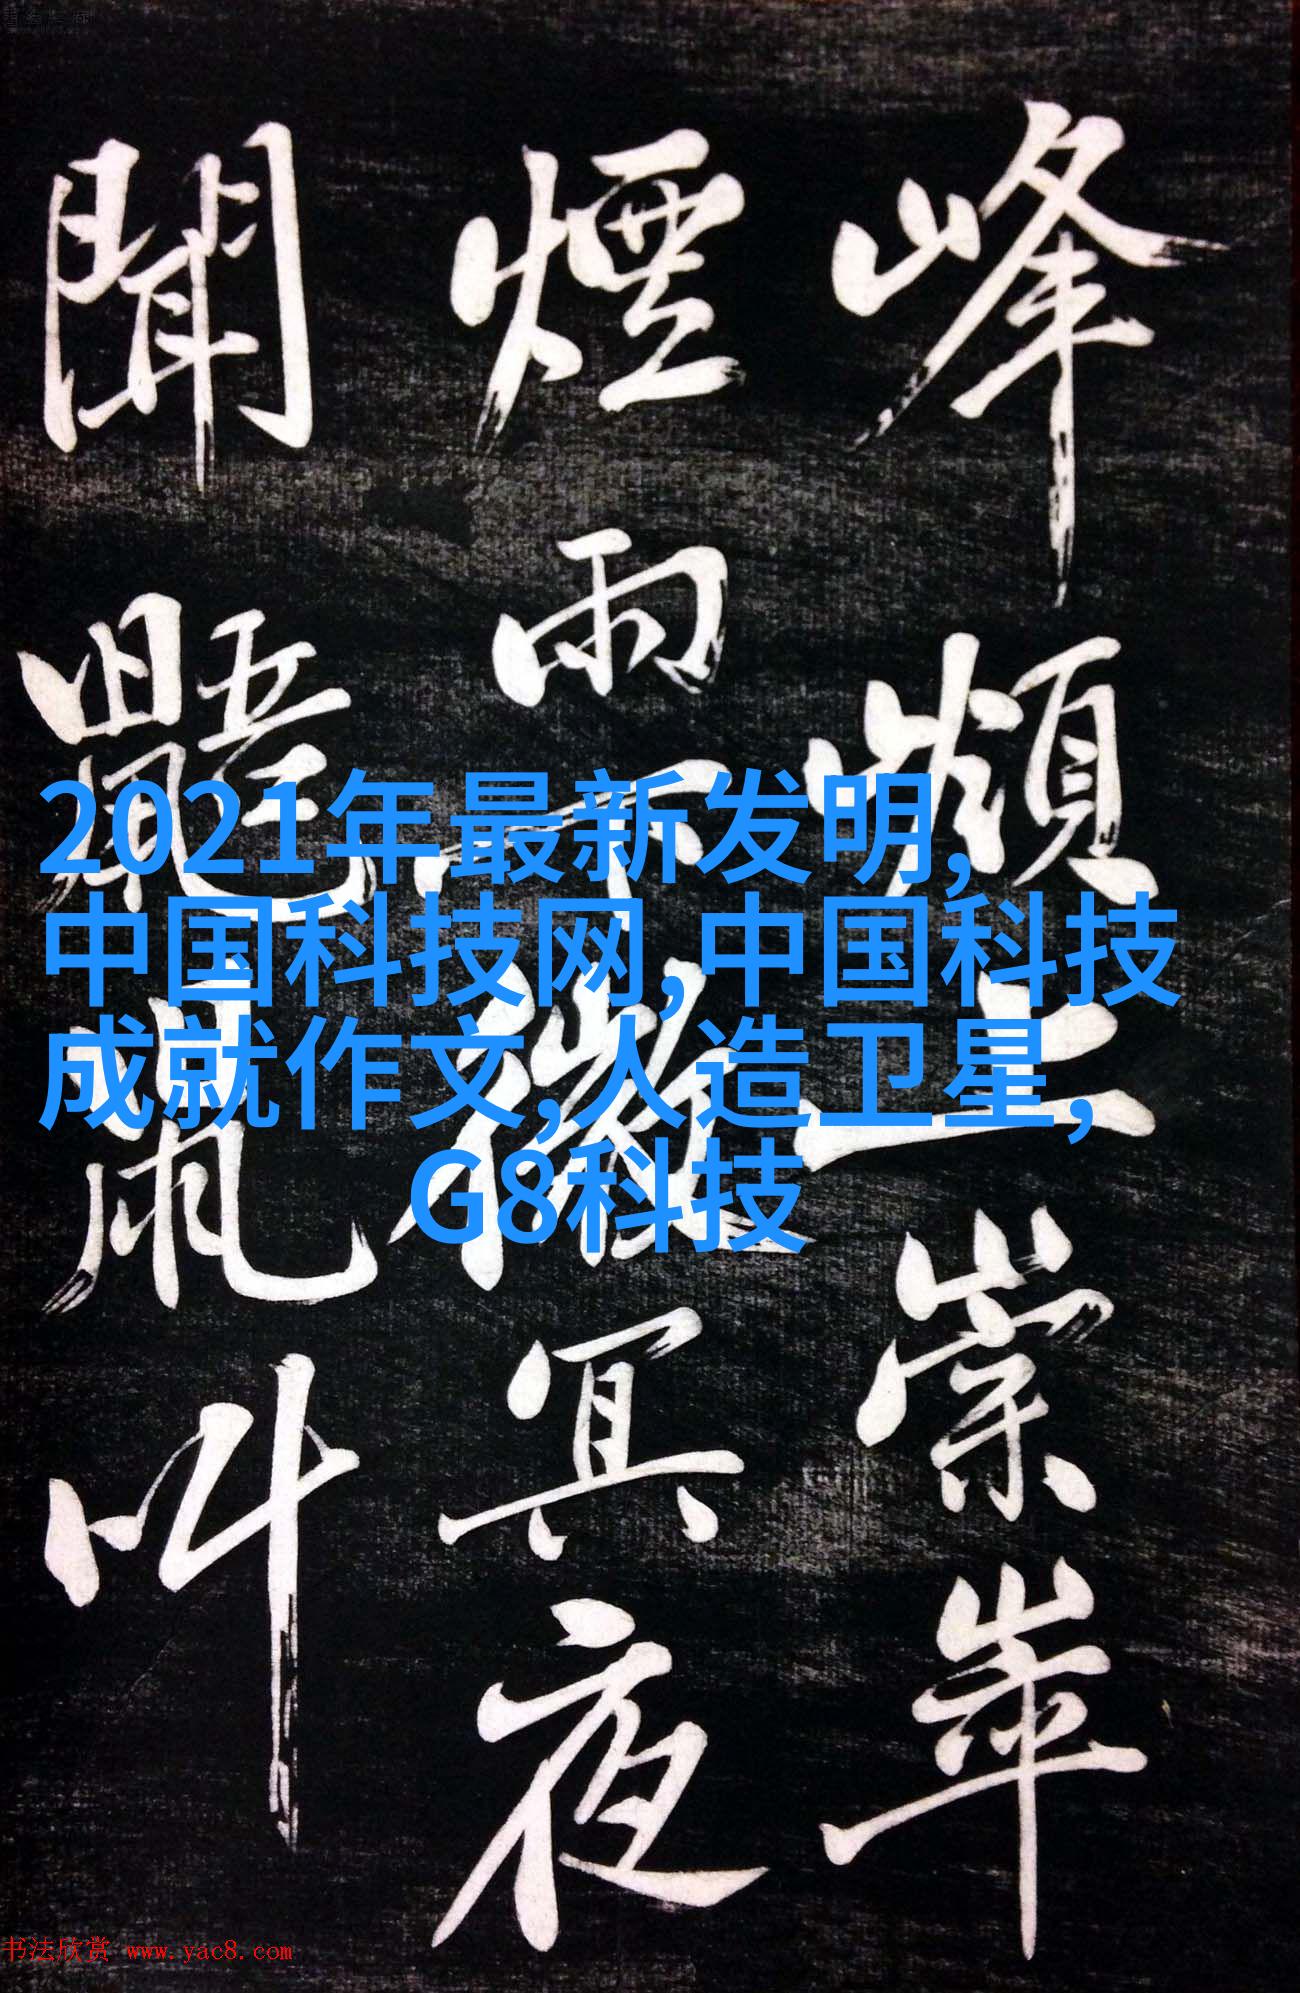 峰上崇崒
煙雨下微冥夜
聞鼯鼠叫
2021年最新发明,
中国科技网,中国科技
成就作文,人造卫星,
G8科技
书法欣赏 www.yac8.com